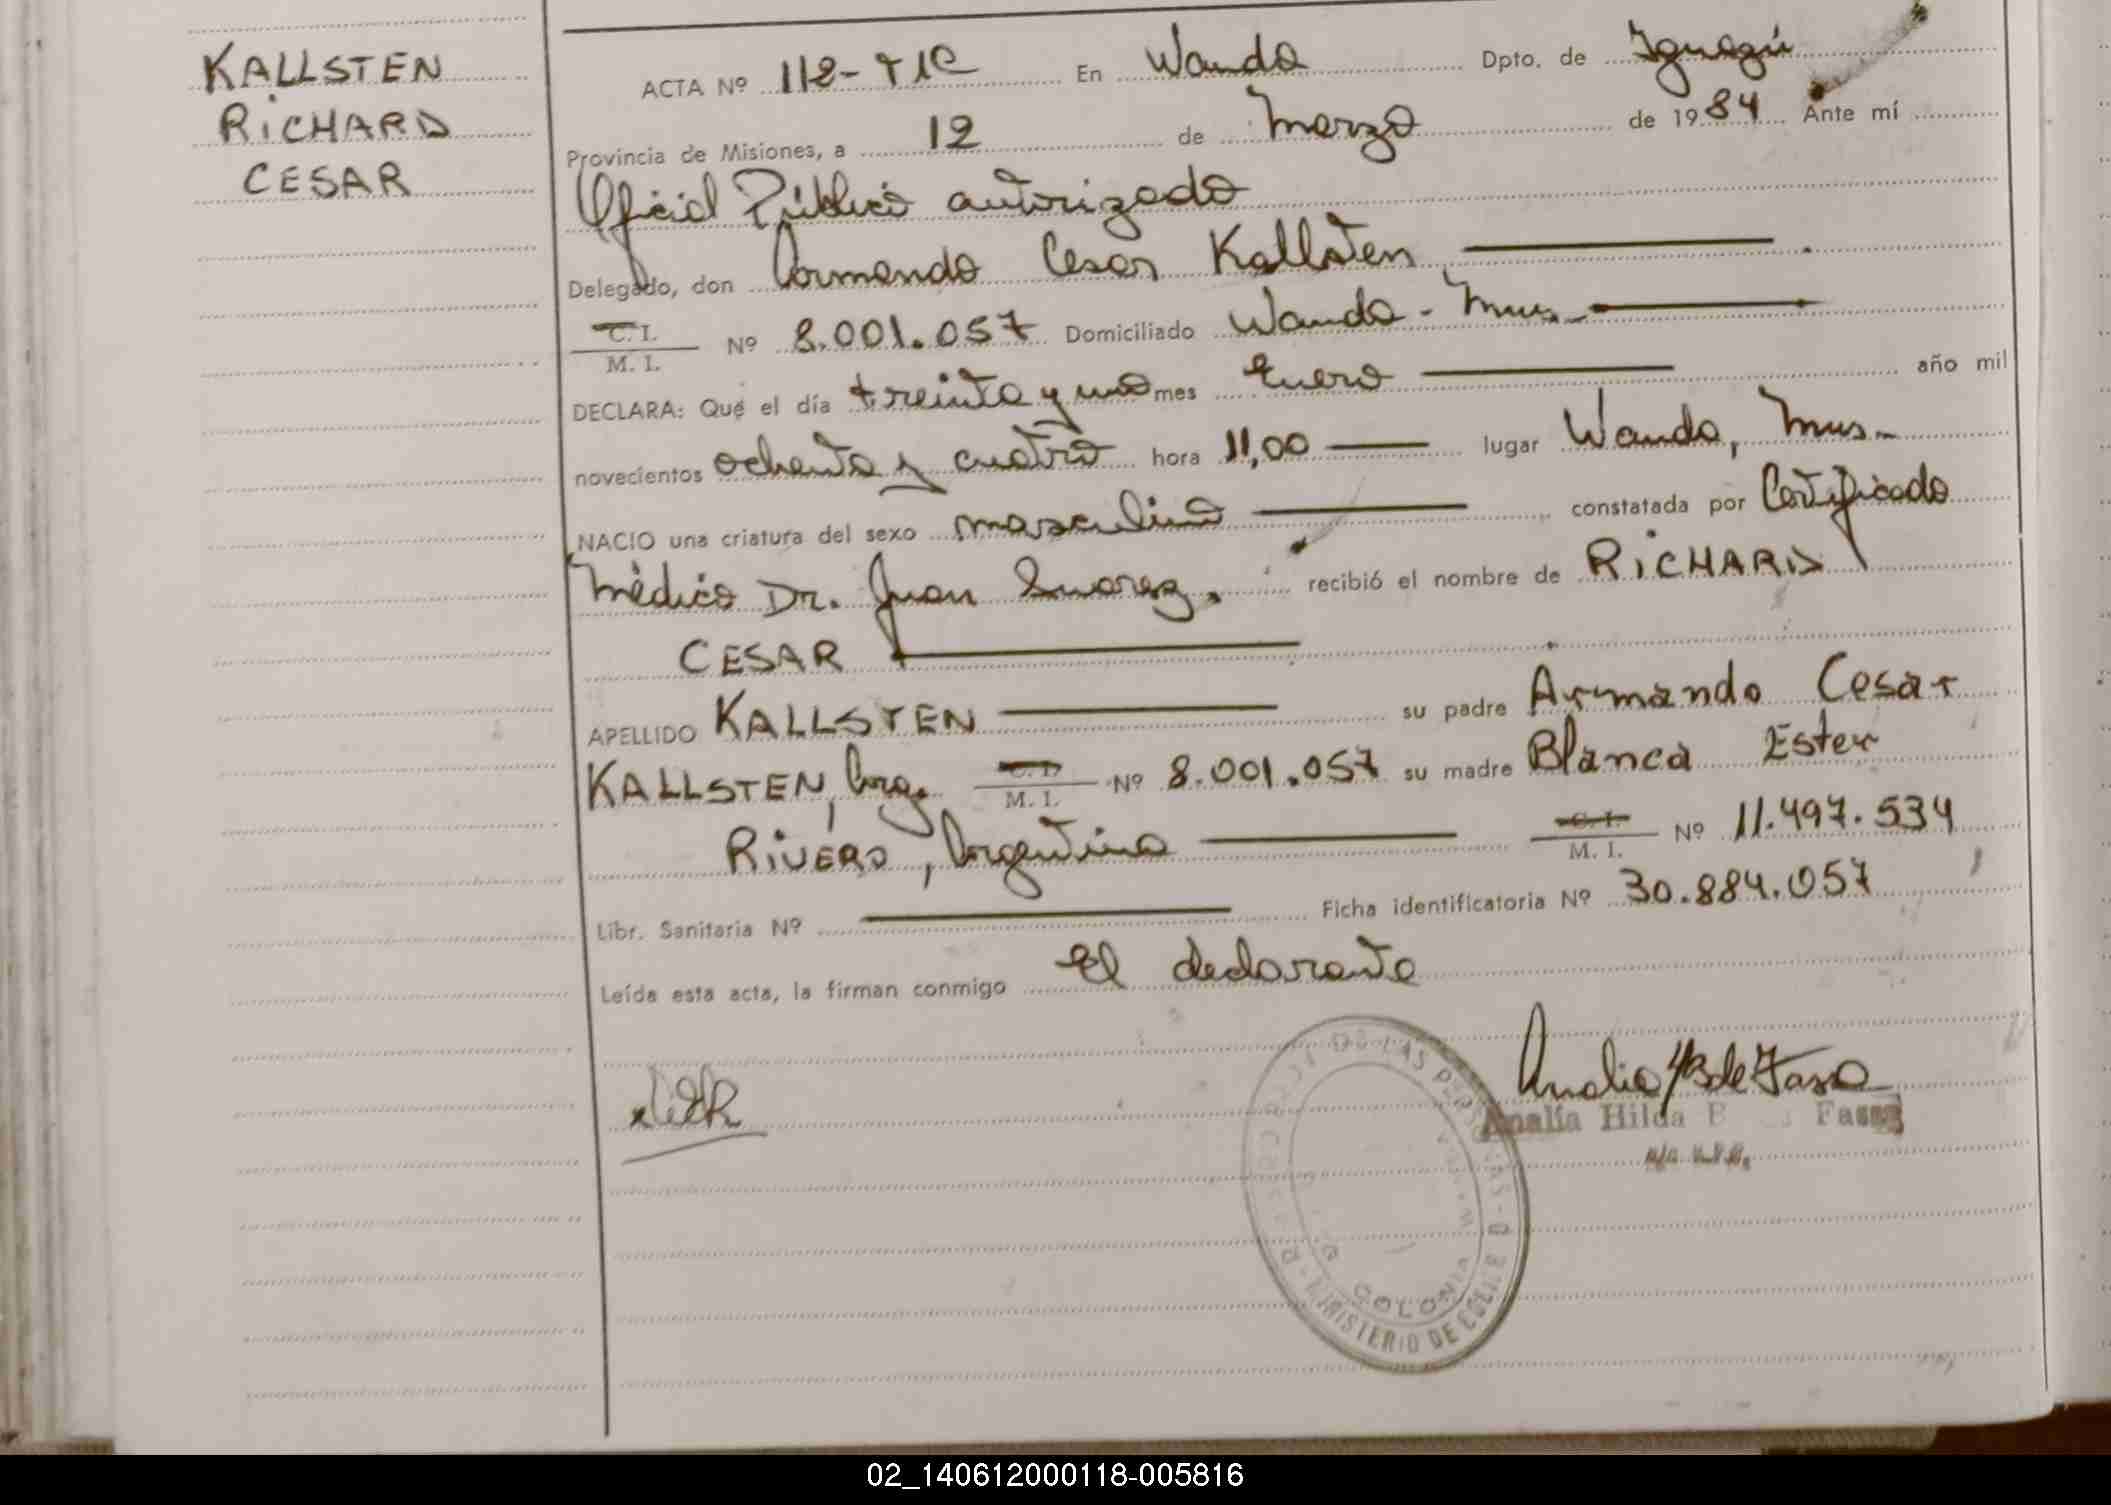 KALLSTEN
RiCHARD
CESAR
ACTA Nº 112-T1C En Wanda Dpto. de Iguazú
Provincia de Misiones, a 12 de Marzo de 1984 Ante mí
Oficial Público autorizado
Delegado, don Armando Cesar Kallsten
C. I.
M. I.
Nº 8.001.057 Domiciliado Wanda - Mnes.
DECLARA: Que el día treinta y uno mes Enero año mil
novecientos ochenta y cuatro hora 11,00 lugar Wanda, Mnes.
NACIO una criatura del sexo masculino constatada por Certificado
Médico Dr. Juan Suarez. recibió el nombre de RiCHARD
CESAR
APELLIDO KALLSTEN su padre Armando Cesar
KALLSTEN, Arg. C. I. M. I. Nº 8.001.057 su madre Blanca Ester
RiVERO, Argentina C. I. M. I. Nº 11.497.534
Libr. Sanitaria Nº Ficha identificatoria Nº 30.884.057
Leída esta acta, la firman conmigo El declarante
Analia H B de Fasso
Analía Hilda B
MINISTERIO DE
COLONIA
02_140612000118-005816